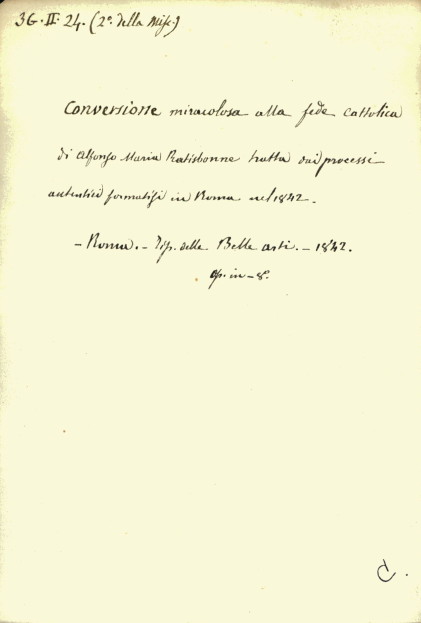 36. II. 24. (2º. della Misc.)
Conversione miracolosa alla fede Cattolica
di Alfonso Maria Ratisbonne tratta dai processi
autentici formatisi in Roma nel 1842.
– Roma. – Tip. delle Belle arti. – 1842.
op. in – 8º.
C.